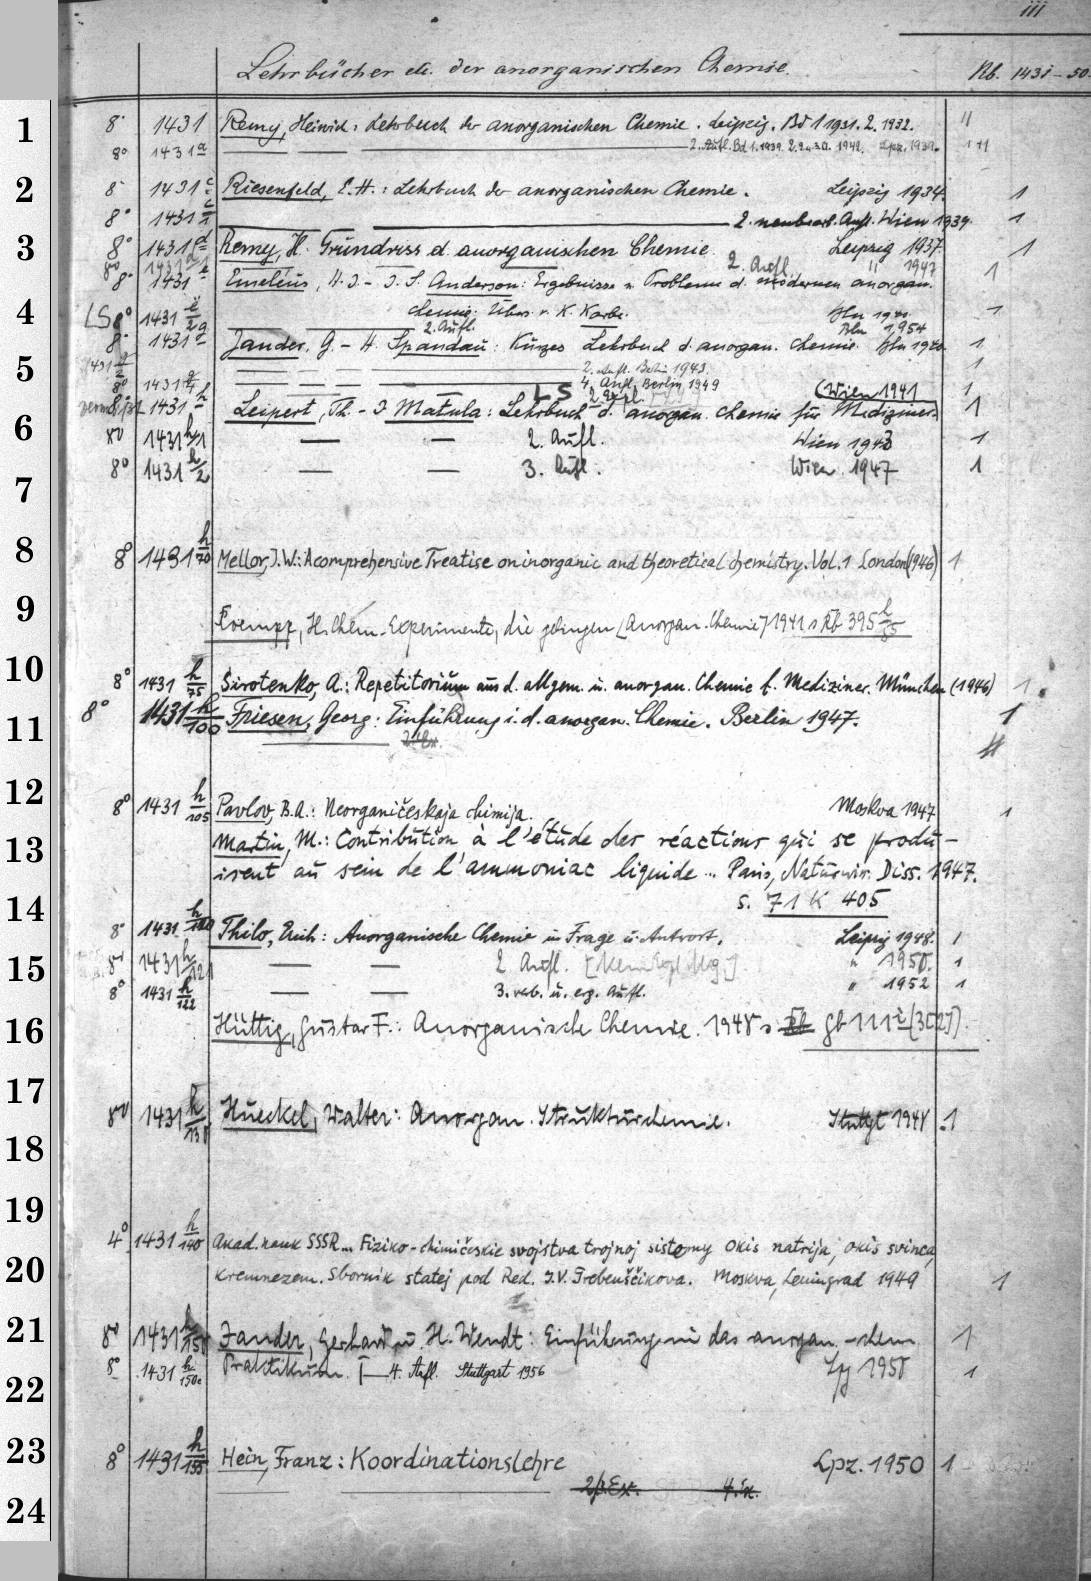 iii
Lehrbücher etc. der anorganischen Chemie. Nb. 1431-50.
1
8° 1431 Remy, Heinrich: Lehrbuch der anorganischen Chemie. Leipzig. Bd 1 1931. 2. 1932. 11
8° 1431 a — — 2. Aufl. Bd 1. 1939. 2. 2. u. 3. A. 1942. Lpz. 1939.
2
8° 1431 c Riesenfeld, E. H.: Lehrbuch der anorganischen Chemie. Leipzig 1934. 1
8° 1431 c/1 — 2. neubearb. Aufl. Wien 1939. 1
3
8° 1431 d Remy, H. Grundriss d. anorganischen Chemie Leipzig 1937. 1
8° 1431 d/1 — 2. Aufl. " 1947
8° 1431 e Emeléus, H. J. - J. S. Anderson: Ergebnisse u. Probleme d. modernen anorgan. 1
4
Chemie. Übers. v. K. Karbe. Bln 1940.
LS 8° 1431 e/2 — 2. Aufl. Bln 1954 1
8° 1431 g Jander, G. - H. Spandau: Kurzes Lehrbuch d. anorgan. Chemie. Bln 1940. 1
5
1431 g/2 — — — 2. Aufl. Berlin 1943. 1
8° 1431 g/4 — — — 4. Aufl. Berlin 1949 1
LS 2. Expl. (Wien 1941
1431 h Leipert, Th. - J. Matula: Lehrbuch d. anorgan. Chemie für Mediziner. 1
6
8° 1431 h/1 — — 2. Aufl. Wien 1943 1
8° 1431 h/2 — — 3. Aufl. Wien 1947 1
7
8
8° 1431 h/70 Mellor, J. W.: A comprehensive Treatise on inorganic and theoretical chemistry. Vol. 1 London (1946) 1
9
Roempp, H. Chem. Experimente, die gelingen [Anorgan. Chemie] 1941 s Rb 395 h/85
10
8° 1431 h/75 Sirotenko, A.: Repetitorium aus d. allgem. u. anorgan. Chemie f. Mediziner. München (1946) 1
8° 1431 h/100 Friesen, Georg: Einführung i. d. anorgan. Chemie. Berlin 1947. 1
11
12
8° 1431 h/105 Pavlov, B. A.: Neorganičeskaja chimija. Moskva 1947 1
13
Martin, M.: Contribution à l'étude des réactions qui se produ-
isent au sein de l'ammoniac liquide ... Paris, Naturwiss. Diss. 1947.
14
s. 71 K 405
8° 1431 h/120 Thilo, Erich: Anorganische Chemie in Frage u. Antwort. Leipzig 1948. 1
15
8° 1431 h/121 — — 2 Aufl. " 1950. 1
8° 1431 h/122 — — 3. verb. u. erg. Aufl. " 1952 1
16
Hüttig, Gustav F.: Anorganische Chemie. 1948 s Rb gb 111 i (3[2])
17
8° 1431 h/130 Hueckel, Walter: Anorgan. Strukturchemie. Stuttgt 1948 1
18
19
4° 1431 h/140 Akad. nauk SSSR... Fiziko-chimičeskie svojstva trojnoj sistemy okis natrija, okis svinca,
20
kremnezem. Sbornik statej pod Red. I. V. Grebenščikova. Moskva, Leningrad 1949 1
21
8° 1431 h/150 Jander, Gerhart u. H. Wendt: Einführung in das anorgan.-chem 1
8° 1431 h/150c Praktikum. — 4. Aufl. Stuttgart 1956 Lpz 1950 1
22
23
8° 1431 h/155 Hein, Franz: Koordinationslehre Lpz. 1950 1
— — 2. Ex. 4. Ex.
24